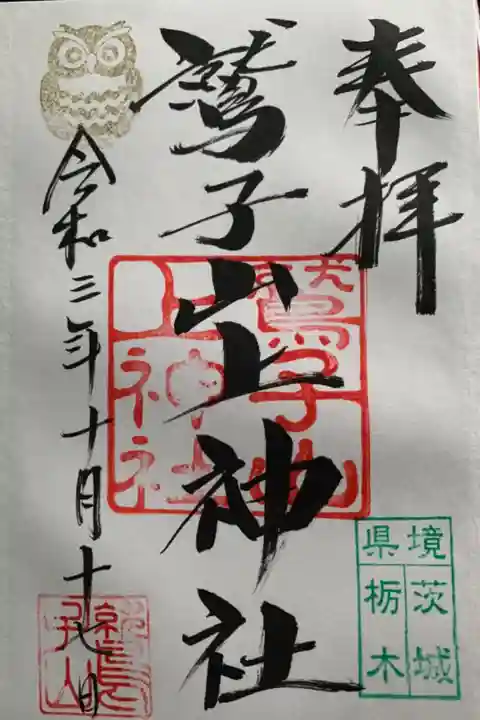 奉拝
鷲子山上神社
令和三年十月十九日
鷲子山上神社
境県
茨城
栃木